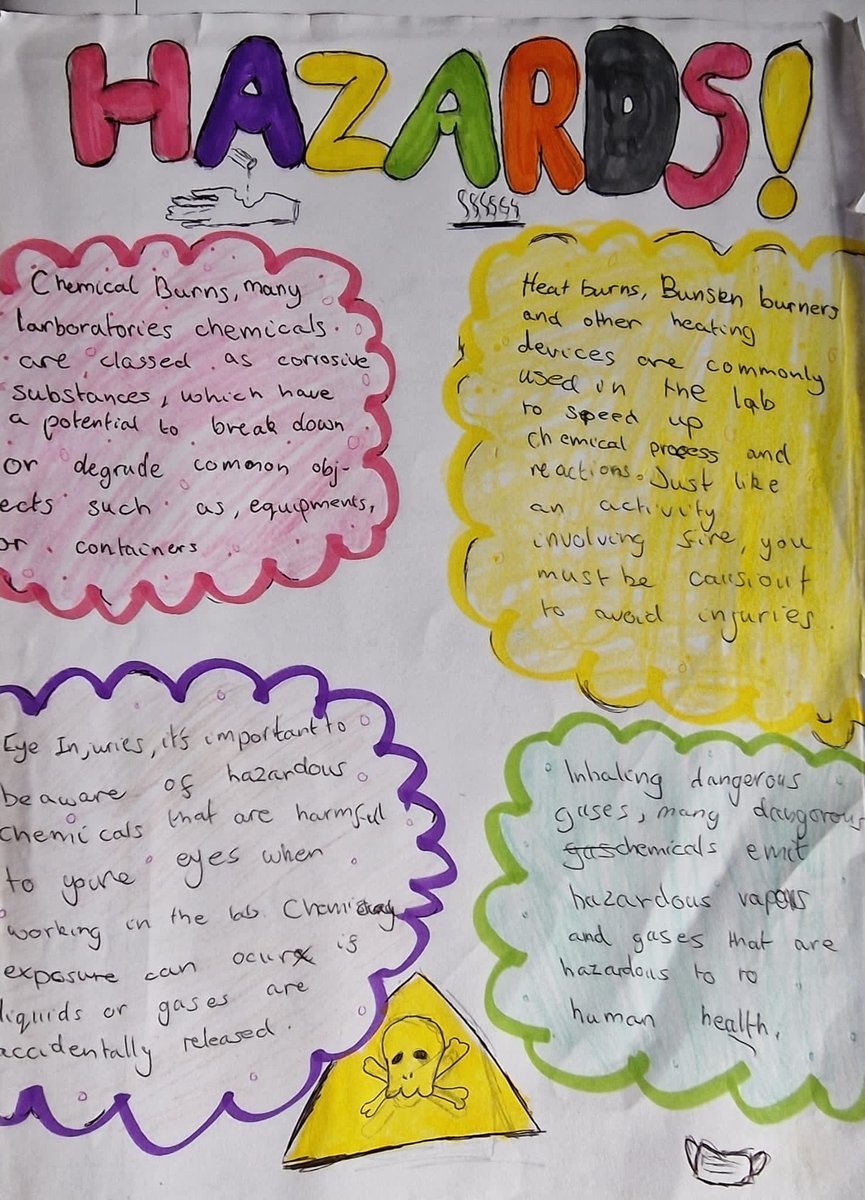 HAZARDS!
Chemical Burns, many
larboratories chemicals.
are classed as corrosive
substances, which have
a potential to break down
or degrude common obj-
ects such as, equipments,
or containers
Heat burns, Bunsen burners
and other heating
devices are commonly
used in the lab
to speed up
chemical process and
reactions. Just like
an activity
involving fire, you
must be causiout
to avoid injuries.
Eye Injuries, it's important to
be aware of hazardous
chemicals that are harmful
to youre eyes when
working in the lab. Chemicay
exposure can ocur if
liquids or gases are
accidentally released.
Inhaling dangerous
gases, many dangorous
gas chemicals emit
hazardous vapors
and gases that are
hazardous to ro
human health.